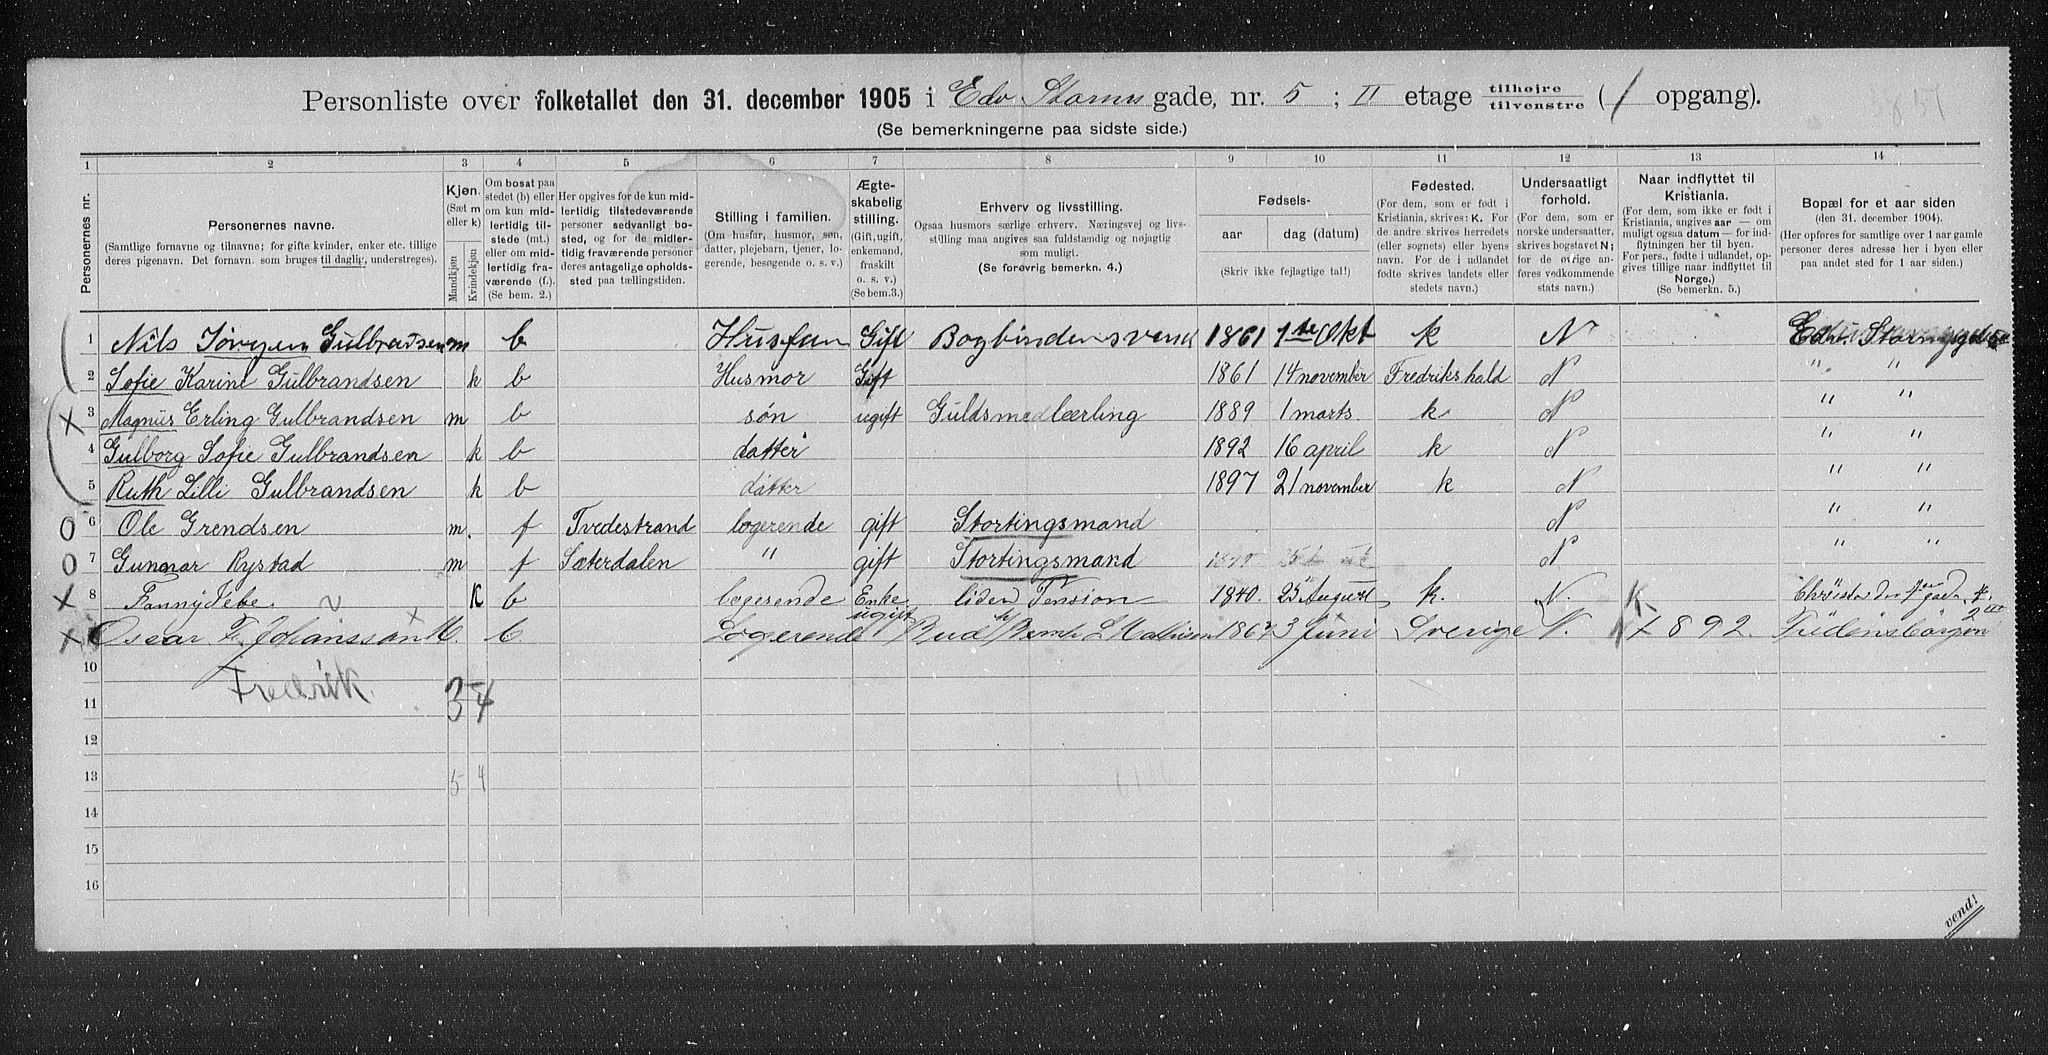 Personliste over folketallet den 31. december 1905 i Edv Storms gade, nr. 5 ; II etage tilhøjre tilvenstre ( 1 opgang).
(Se bemerkningerne paa sidste side.)
1 2 3 4 5 6 7 8 9 10 11 12 13 14
Personernes nr.
Personernes navne.
(Samtlige fornavne og tilnavne; for gifte kvinder, enker etc. tillige
deres pigenavn. Det fornavn. som bruges til daglig, understreges).
Kjøn.
(Sæt m
eller k)
Mandkjøn
Kvindekjøn
Om bosat paa
stedet (b) eller
om kun mid-
lertidig til-
stede (mt.)
eller om mid-
lertidig fra-
værende (f.).
(Se bem. 2.)
Her opgives for de kun mid-
lertidig tilstedeværende
personer sedvanligt bo-
sted, og for de midler-
tidig fraværende personer
deres antagelige opholds-
sted paa tællingstiden.
Stilling i familien.
(Om husfar, husmor, søn,
datter, plejebarn, tjener, lo-
gerende, besøgende o. s. v.)
Ægte-
skabelig
stilling.
(Gift, ugift,
enkemand,
fraskilt
o. s. v.)
(Se bem.3.)
Erhverv og livsstilling.
Ogsaa husmors særlige erhverv. Næringsvej og livs-
stilling maa angives saa fuldstændig og nøjagtig
som muligt.
(Se forøvrig bemerkn. 4.)
Fødsels-
aar
dag (datum)
(Skriv ikke fejlagtige tal!)
Fødested.
(For dem, som er født i
Kristiania, skrives: K. For
de andre skrives herredets
(eller sognets) eller byens
navn. For de i udlandet
fødte skrives landets eller
stedets navn.)
Undersaatligt
forhold.
(For dem, som er
norske undersaatter,
skrives bogstavet N;
for de øvrige an-
føres vedkommende
stats navn.)
Naar indflyttet til
Kristiania.
(For dem, som ikke er født i
Kristiania, angives aar — om
muligt ogsaa datum — for ind-
flytningen her til byen.
For pers., fødte i udlandet, op-
gives tillige naar indflyttet til
Norge.)
(Se bemerkn. 5.)
Bopæl for et aar siden
(den 31. december 1904).
(Her opføres for samtlige over 1 aar gamle
personer deres adresse her i byen eller
paa andet sted for 1 aar siden.)
1 Nils Jørgen Gulbrandsen m b Husfar Gift Bogbindersvend 1861 1te Okt k N Edv. Stormsgade 5
2 Sofie Karine Gulbrandsen k b Husmor Gift 1861 14 november Fredrikshald N " "
x 3 Magnus Erling Gulbrandsen m b søn ugift Guldsmedlærling 1889 1 marts. k. N " "
4 Gulborg Sofie Gulbrandsen k b datter 1892 16 april k N " "
5 Ruth Lilli Gulbrandsen k b datter 1897 21 november k N " "
0 6 Ole Grendsen m. f Tvedestrand logerende gift Stortingsmand N " "
0 7 Gunnar Rystad m f Sæterdalen " gift Stortingsmand 1840 N " "
x 8 Fanny Jebe. K b logerende Enke liden Pension 1840. 25 August k. N.
x Oscar F. Johansson M. b Logerende ugift Bud 1867 3 Juni Sverige N. 1892.
10 Fredrik.
11 3 4
12
13 5 4
14
15
16
vend!